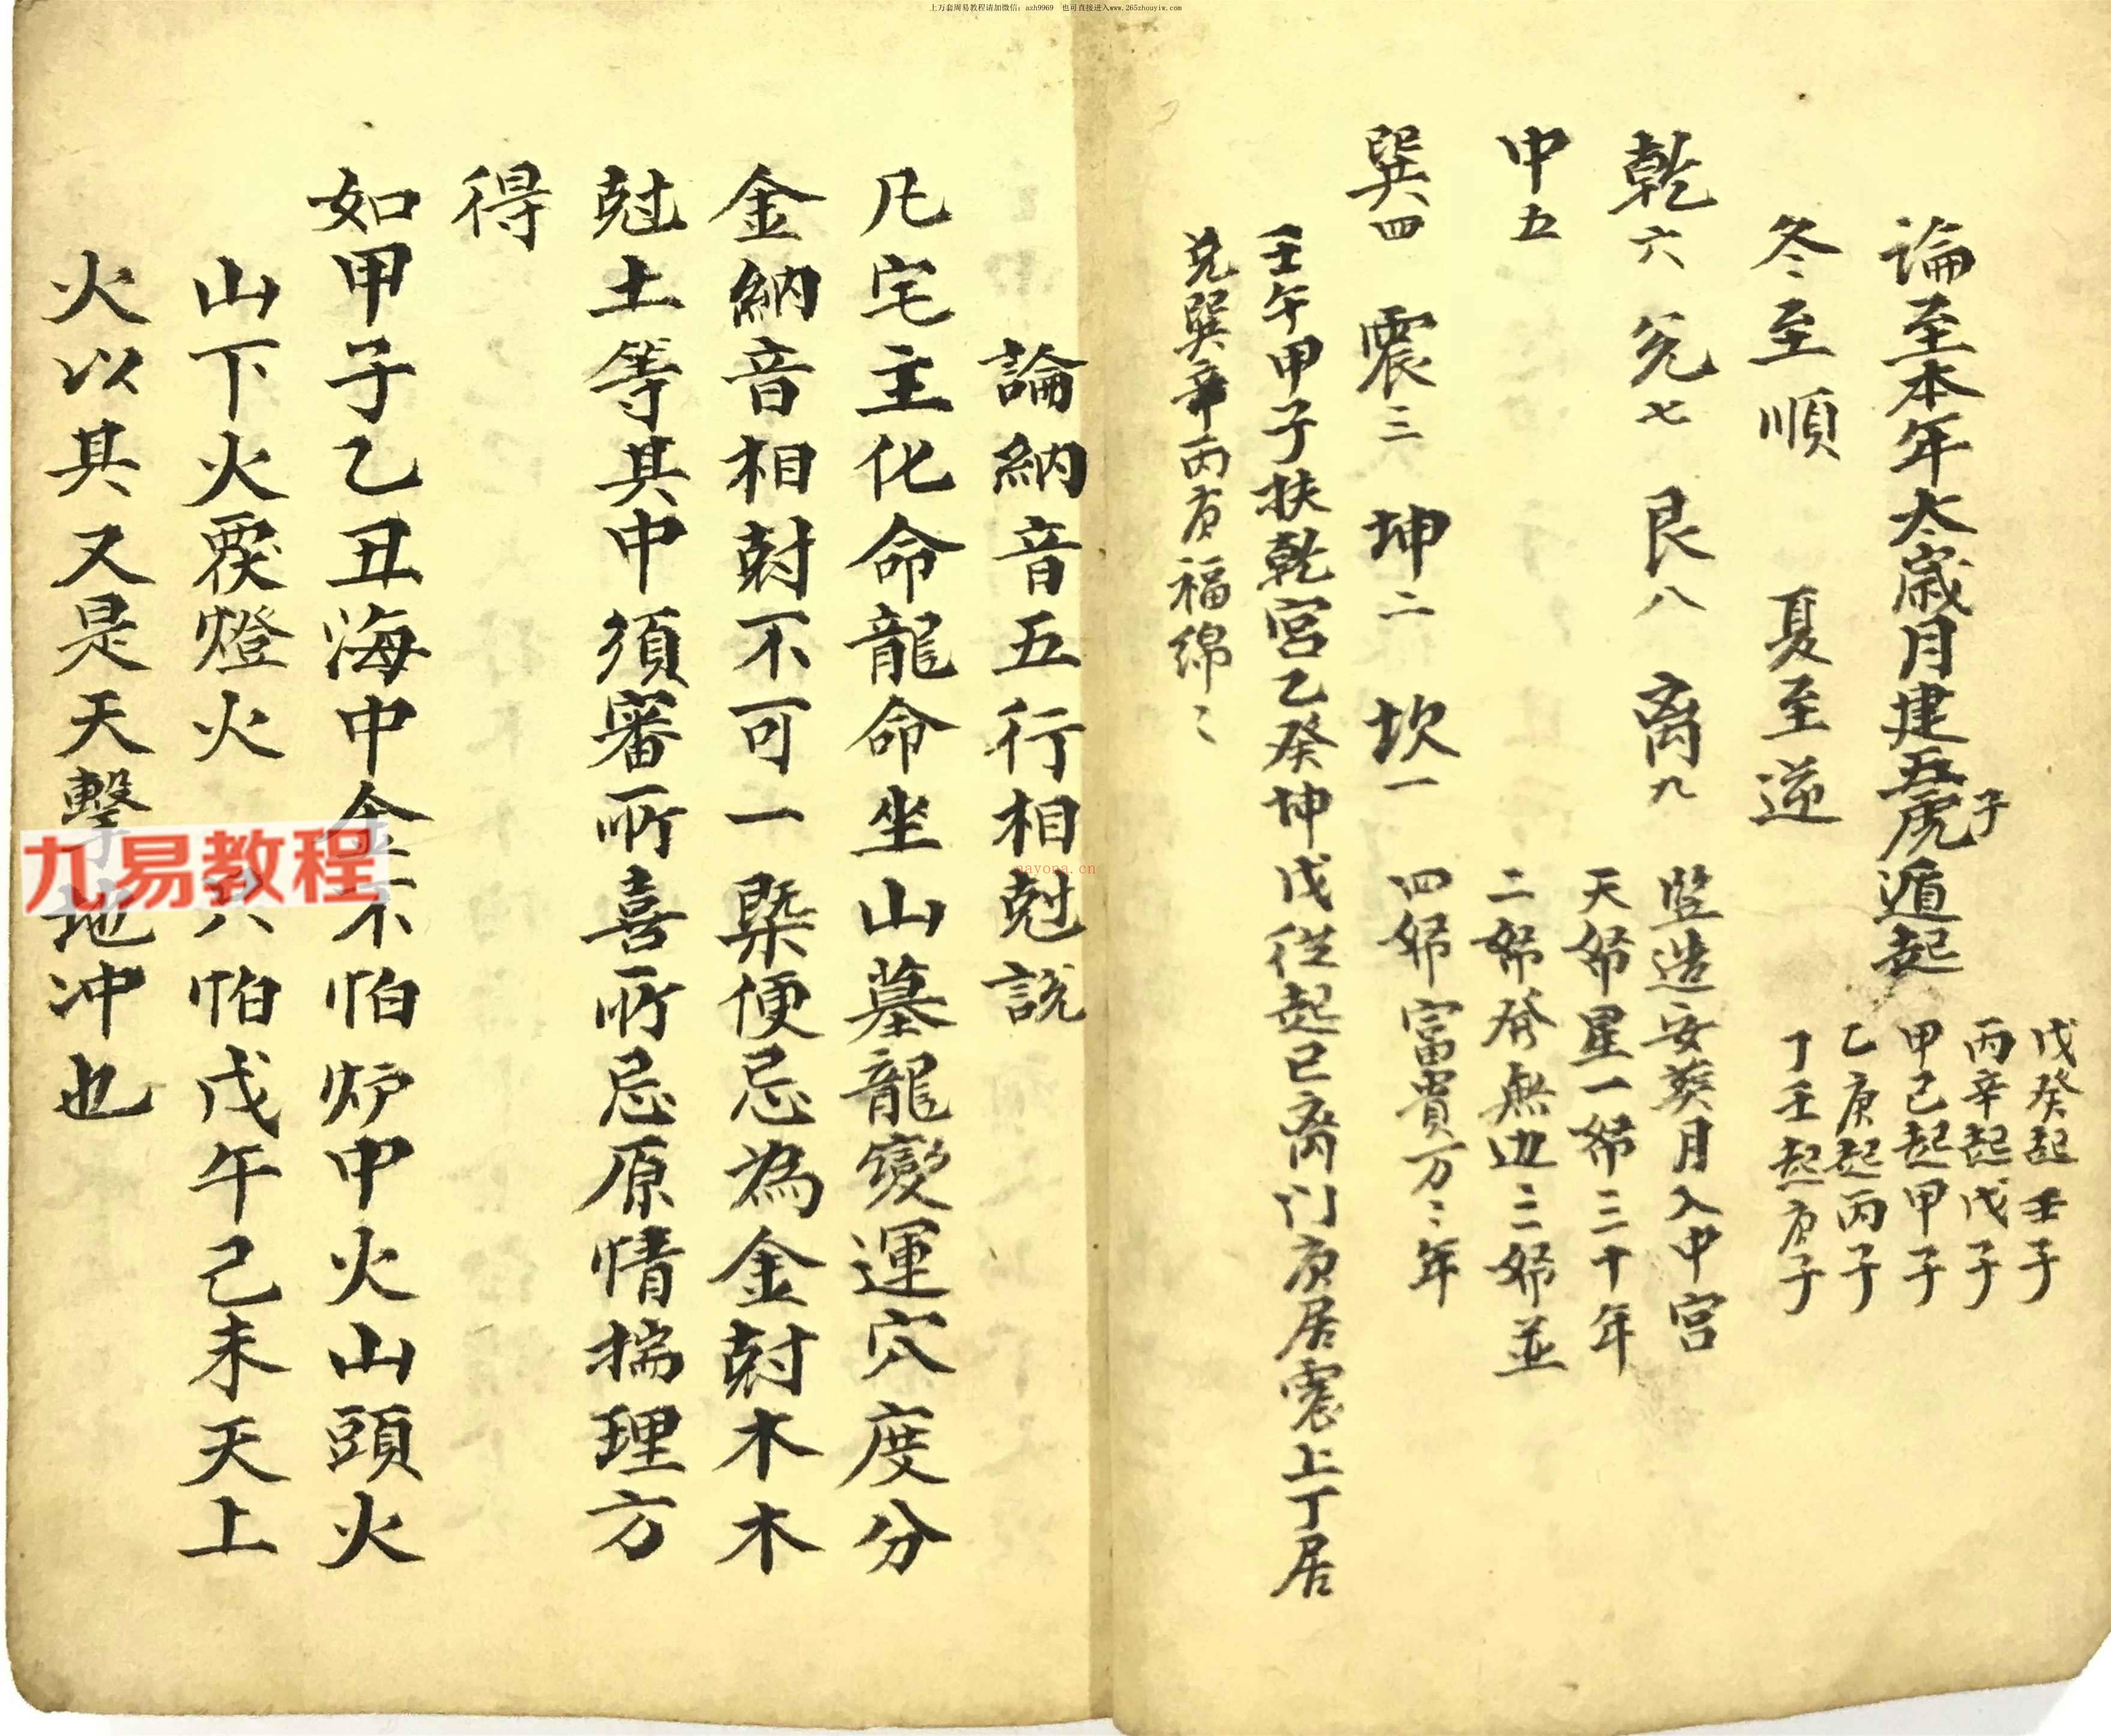 上万套周易教程请加微信：azh9969　也可直接进入www.265zhouyiw.com
論至本年太歲月建五虎遁起
子
戊癸起壬子
丙辛起戊子
甲己起甲子
乙庚起丙子
丁壬起庚子
冬至順　夏至逆
乾六　兊七　艮八　离九
中五
巽四　震三　坤二　坎一
竪造安葵月入中宮
天帰星一帰三十年
二帰發無边三帰並
四帰富貴万〻年
壬午甲子扶乾宮乙癸坤戊從起巳离门庚居震上丁居
兑巽辛丙庚福綿〻
論納音五行相尅説
凡宅主化命龍命坐山墓龍變運穴度分
金納音相尅不可一槩便忌為金尅木木
尅土等其中須審所喜所忌原情揣理方
得
如甲子乙丑海中金不怕炉中火山頭火
山下火覆燈火　只怕戊午己未天上
火以其又是天擊地冲也
九易教程
nayona.cn